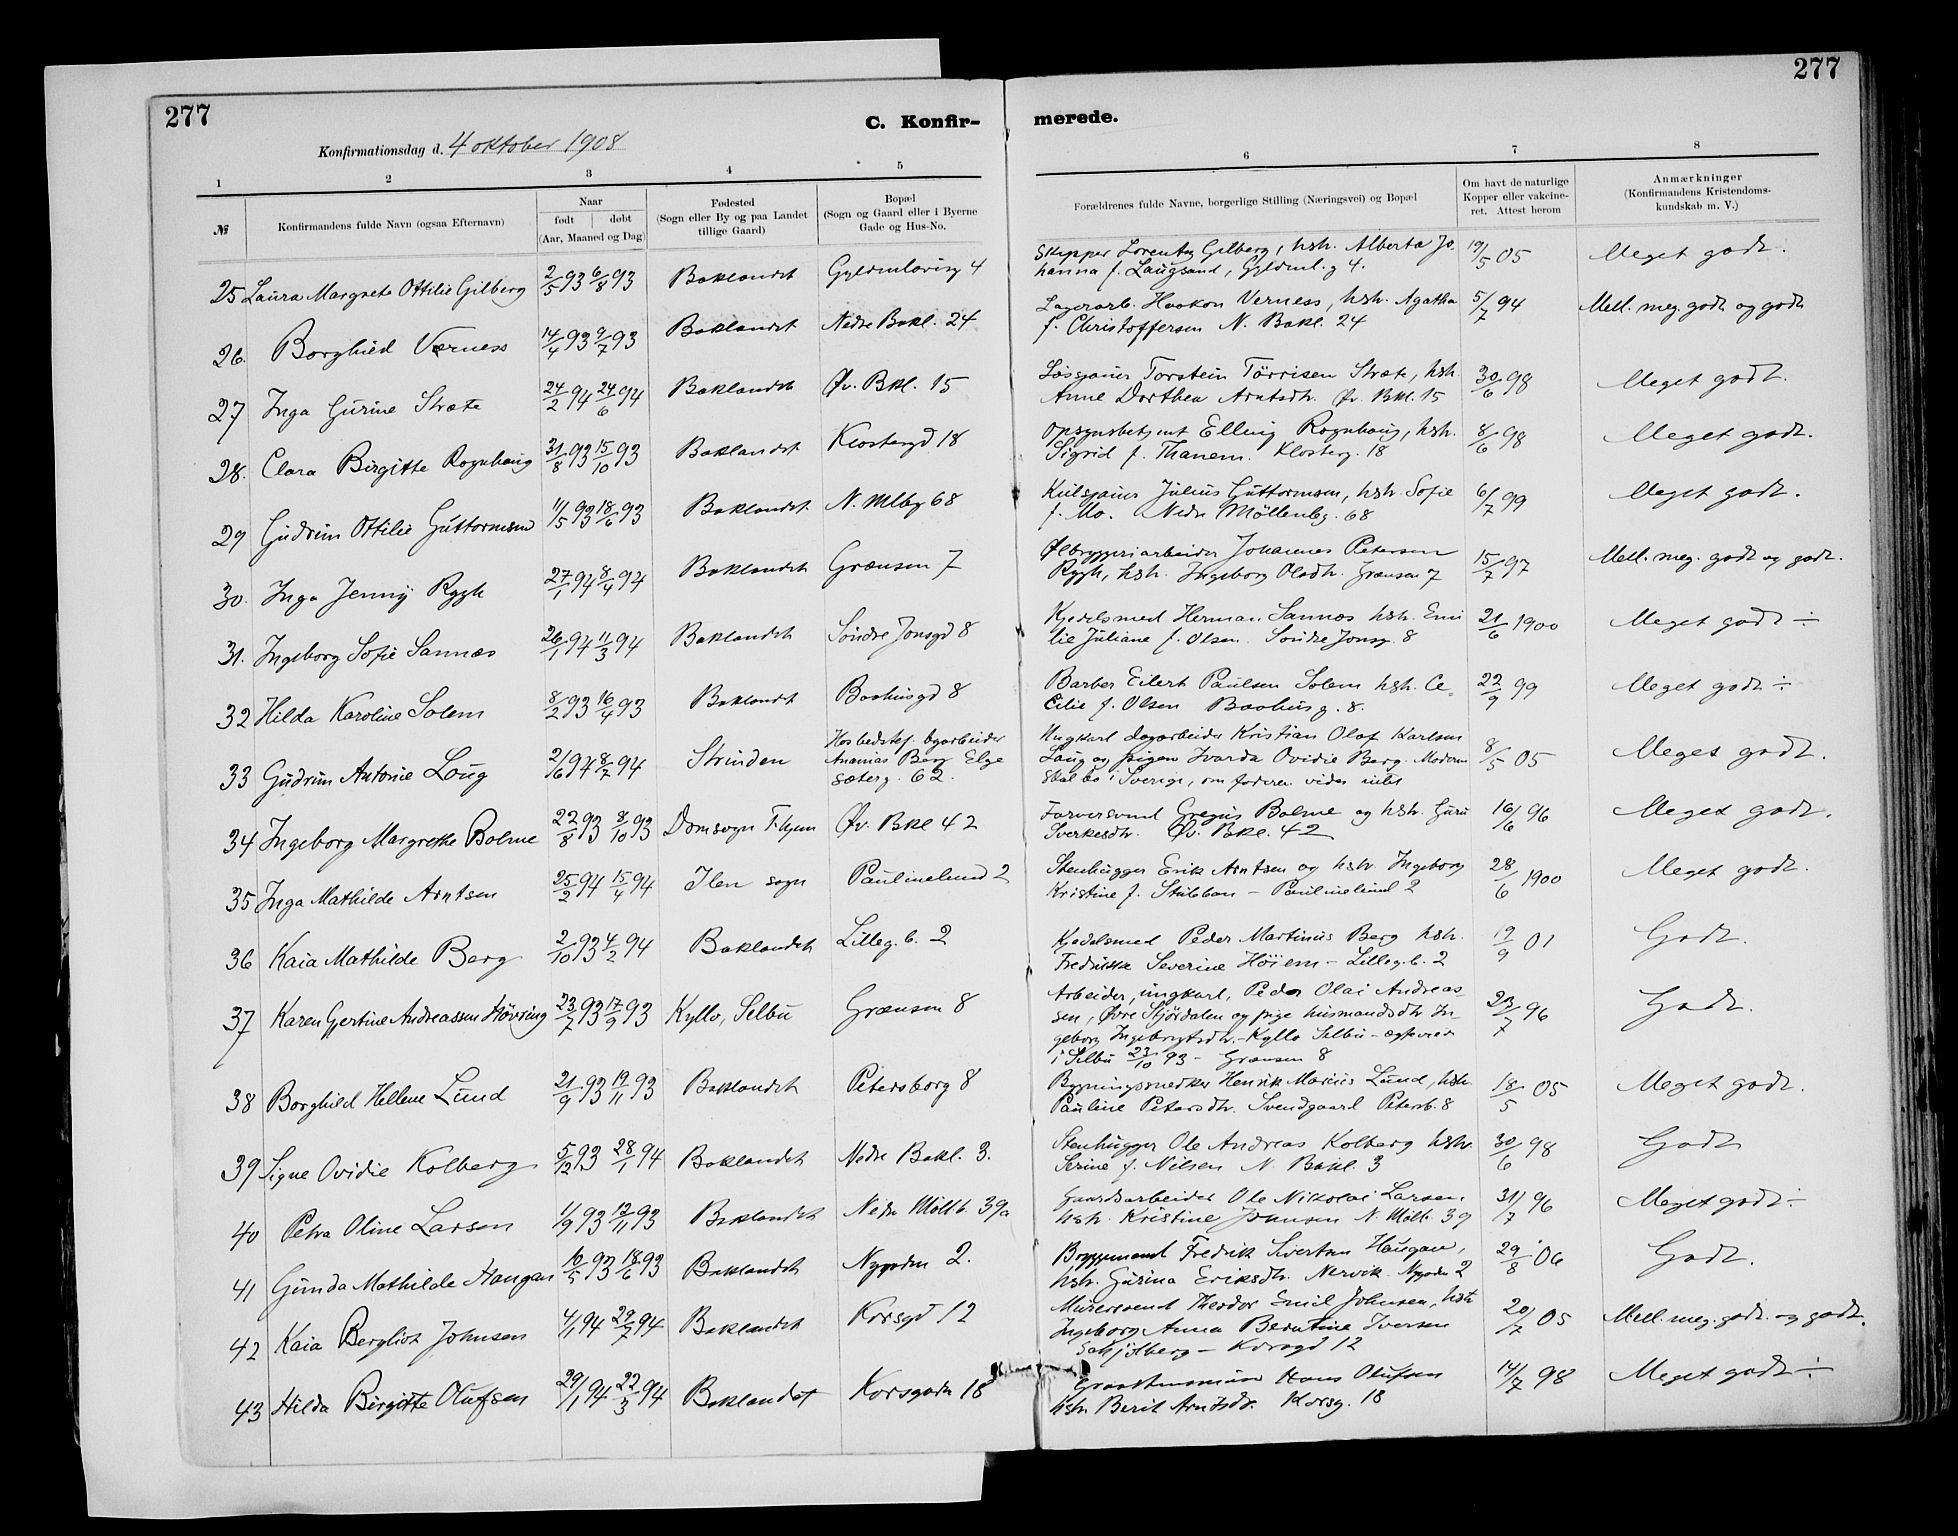 277
277
C. Konfir-
merede.
Konfirmationsdag d. 4 oktober 1908
1 2 3 4 5 6 7 8
№ Konfirmandens fulde Navn (ogsaa Efternavn) Naar født døbt (Aar, Maaned og Dag) Fødested (Sogn eller By og paa Landet tillige Gaard) Bopæl (Sogn og Gaard eller i Byerne Gade og Hus-No. Forældrenes fulde Navne, borgerlige Stilling (Næringsvei) og Bopæl Om havt de naturlige Kopper eller vakcineret. Attest herom Anmærkninger (Konfirmandens Kristendomskundskab m. V.)
25 Laura Margrete Ottilie Gilberg 2/5 93 6/8 93 Baklandet Gyldenløvesg 4 Skipper Lorentz Gilberg, hstr. Alberta Jo-
hanna f. Laugsand, Gyldenl.g 4. 19/5 05 Meget godt.
26. Borghild Verness 14/4 93 9/7 93 Baklandet Nedre Bakl. 24 Lagerarb. Haakon Verness, hstr. Agatha
f. Christoffersen N. Bakl. 24 5/7 94 Mell. meg. godt og godt
27 Inga Gurine Stræte 24/2 94 24/6 94 Baklandet Øv. Bkl. 15 Løsgjører Torstein Törrisen Stræte, hstr.
Anne Dorthea Arntsdtr. Øv. Bkl. 15 30/6 98 Meget godt.
28. Clara Birgitte Rognhaug 31/8 93 15/10 93 Baklandet Klostergd 18 Opsynsbetjent Elling Rognhaug, hstr.
Sigrid f. Thanem. Klosterg. 18 8/6 98 Meget godt.
29 Gudrun Ottilie Guttormsen 11/5 93 18/6 93 Baklandet N. Mlbg 68 Julius Guttormsen, hstr. Sofie
f. Mo. Nedre Möllenbg. 68 6/7 99 Meget godt.
30. Inga Jenny Rygh 27/1 94 8/4 94 Baklandet Grænsen 7 Ølbryggeriarbeider Johannes Petersen
Rygh, hstr. Ingeborg Olsdtr. Grænsen 7 15/7 97 Mell. meg. godt og godt.
31. Ingeborg Sofie Sannæs 26/1 94 11/3 94 Baklandet Söndre Jonsgd 8 Kjedelsmed Herman Sannæs hstr. Emi
lie Juliane f. Olsen. Söndre Jonsg. 8 21/6 1900 Meget godt ÷
32 Hilda Karoline Solem 8/2 93 16/4 93 Baklandet Baahusgd 8 Barber Eilert Paulsen Solem hstr. Ce-
cilie f. Olsen Baahusg. 8. 22/9 99 Meget godt ÷
33 Gudrun Antonie Loug 2/6 94 8/7 94 Strinden Hos bedstef. bgarbeider
Ananias Berg Elge
sæterg. 62. Ungkarl dagarbeider Kristian Olaf Karlsen
Laug og pigen Ivarda Ovidie Berg. Moderen
skal bo i Sverige, om faderen vides intet 8/5 05 Meget godt.
34 Ingeborg Margrethe Bolme 22/8 93 8/10 93 Domsogn T.hjem Øv. Bkl 42 Farversvend Gregus Bolme og hstr. Guru
Sverkesdtr. Øv. Bkl. 42 16/6 96 Meget godt.
35 Inga Mathilde Arntsen 25/2 94 15/4 94 Ilen sogn Paulinelund 2 Stenhugger Erik Arntsen og hstr. Ingeborg
Kristine f. Stubban – Paulinelund 2 28/6 1900 Meget godt.
36 Kaia Mathilde Berg 2/10 93 4/2 94 Baklandet Lilleg.b. 2 Kjedelsmed Peder Martinus Berg hstr.
Fredrikke Severine Höiem – Lilleg.b. 2 19/9 01 Godt.
37 Karen Gjertine Andreassen Hövring 23/7 93 17/9 93 Kyllo, Selbu Grænsen 8 Arbeider, ungkarl, Peder Olai Andreas-
sen, Øvre Stjördalen og pige husmandsdtr In-
geborg Ingebrigtsdtr. – Kyllo Selbu – ægteviet
i Selbu 23/10 93 – Grænsen 8 23/7 96 Godt.
38 Borghild Hellene Lund 21/9 93 19/11 93 Baklandet Petersborg 8 Bygningssnedker Henrik Marius Lund, hstr.
Pauline Petersdtr. Svendgaard Petersb. 8 18/5 05 Meget godt.
39 Signe Ovidie Kolberg 5/12 93 28/1 94 Baklandet Nedre Bakl. 3. Stenhugger Ole Andreas Kolberg hstr.
Serine f. Nilsen N. Bakl. 3 30/6 98 Godt
40 Petra Oline Larsen 11/9 93 12/11 93 Baklandet Nedre Möllb. 39a Gaardsarbeider Ole Nikolai Larsen.
hstr. Kristine Johnsen N. Möllb. 39 31/7 96 Meget godt ÷
41 Gunda Mathilde Haugan 10/5 93 18/6 93 Baklandet Nygaden 2. Bryggemand Fredrik Sivertsen Haugan,
hstr. Gurina Eriksdtr. Nervik. Nygaden 2 29/8 06 Godt.
42 Kaia Bergliot Johnsen 4/1 94 29/7 94 Baklandet Korsgd 12 Murersvend Theodor Emil Johnsen, hstr
Ingeborg Anna Berntine Iversen
Schjölberg – Korsgd 12 20/7 05 Mell. meg. godt og godt.
43 Hilda Birgitte Olufsen 29/1 94 22/3 94 Baklandet Korsgaden 18 Hans Olufsen
hstr. Berit Arntsdtr. Korsg. 18 14/7 98 Meget godt ÷